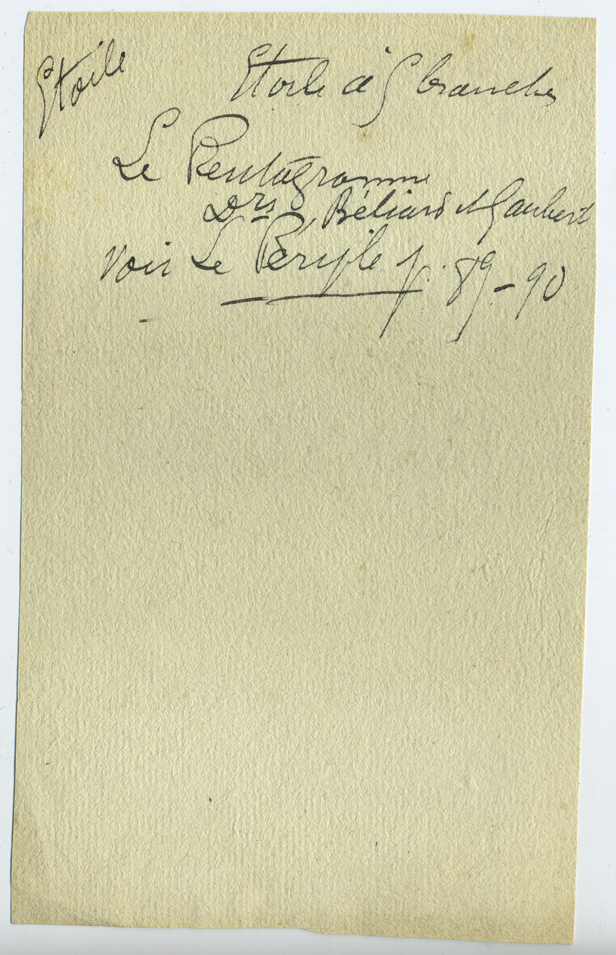 Etoile
Etoile à 5 branches
Le Pentagramme
Drs Béliard et Gaubert
Voir Le Périple p. 89-90